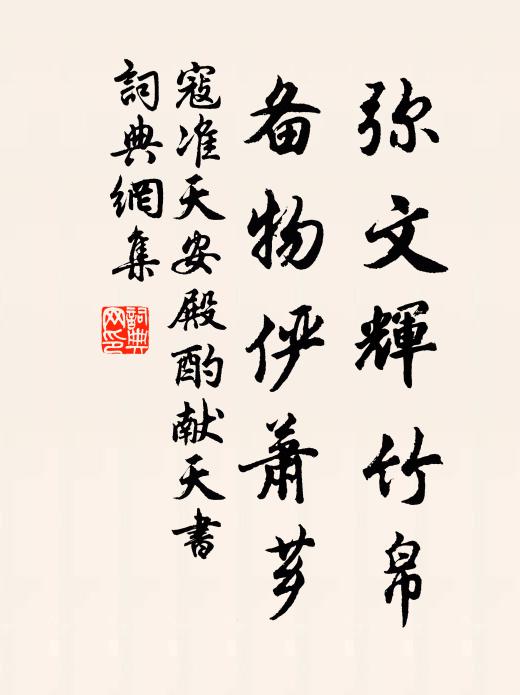 弥文輝竹帛
备物俨蕭芗
寇准天安殿酌献天書
詞典網集
詞典网印